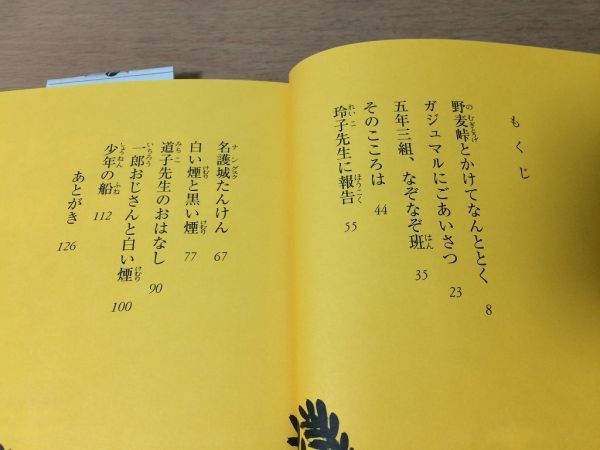 もくじ
野麦峠とかけてなんととく 8
ガジュマルにごあいさつ 23
五年三組、なぞなぞ班 35
そのこころは 44
玲子先生に報告 55
名護城たんけん 67
白い煙と黒い煙 77
道子先生のおはなし 90
一郎おじさんと白い煙 100
少年の船 112
あとがき 126